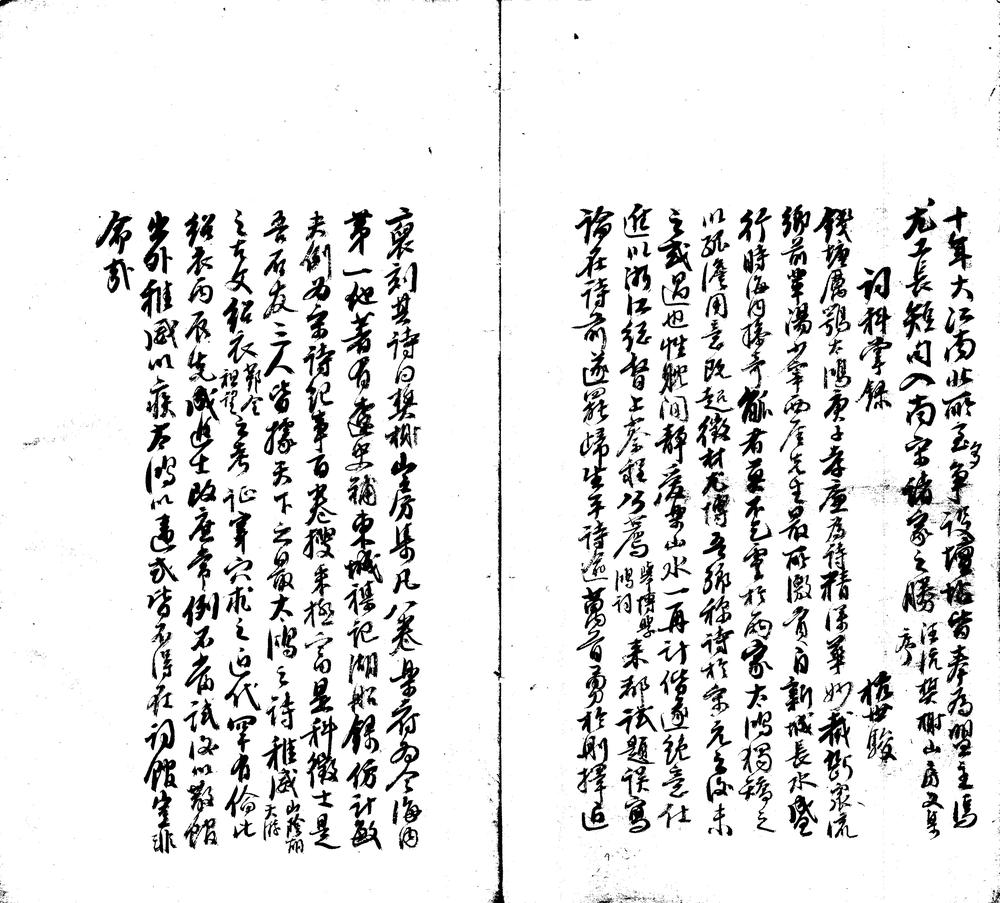 十年大江南北所至多爭設壇坫皆奉為盟主焉
尤工長短句入南宋諸家之勝汪沆樊榭山房文集序
詞科掌錄 杭世駿
錢塘厲鶚太鴻庚子孝廉為詩精深華妙截斷衆流
鄉前輩湯少宰西厓先生最所激賞自新城長水盛
行時海內操奇觚者莫不乞靈於兩家太鴻獨矯之
以孤澹用意既超徵材尤博吾鄉稱詩於宋元之後未
之或過也性躭閒靜愛樂山水一再計偕遂絕意仕
進以浙江總督上蔡程公薦舉博學鴻詞來都試題誤寫
論在詩前遂罷歸生平詩逾萬首勇於刪擇近
裒刻其詩曰樊榭山房集凡八卷樂府為今海內
第一他著有遼史補東城襍記湖船錄仿計敏
夫例為宋詩紀事百卷搜采極富是科徵士是
吾石友三人皆據天下之最太鴻之詩稚威山陰胡天游
之古文紹衣鄞全祖望之考証穿穴求之近代罕有倫比
紹衣丙辰先成進士改庶常例不當試後以散館
出外稚威以疾太鴻以違式皆不得在詞館豈非
命邪